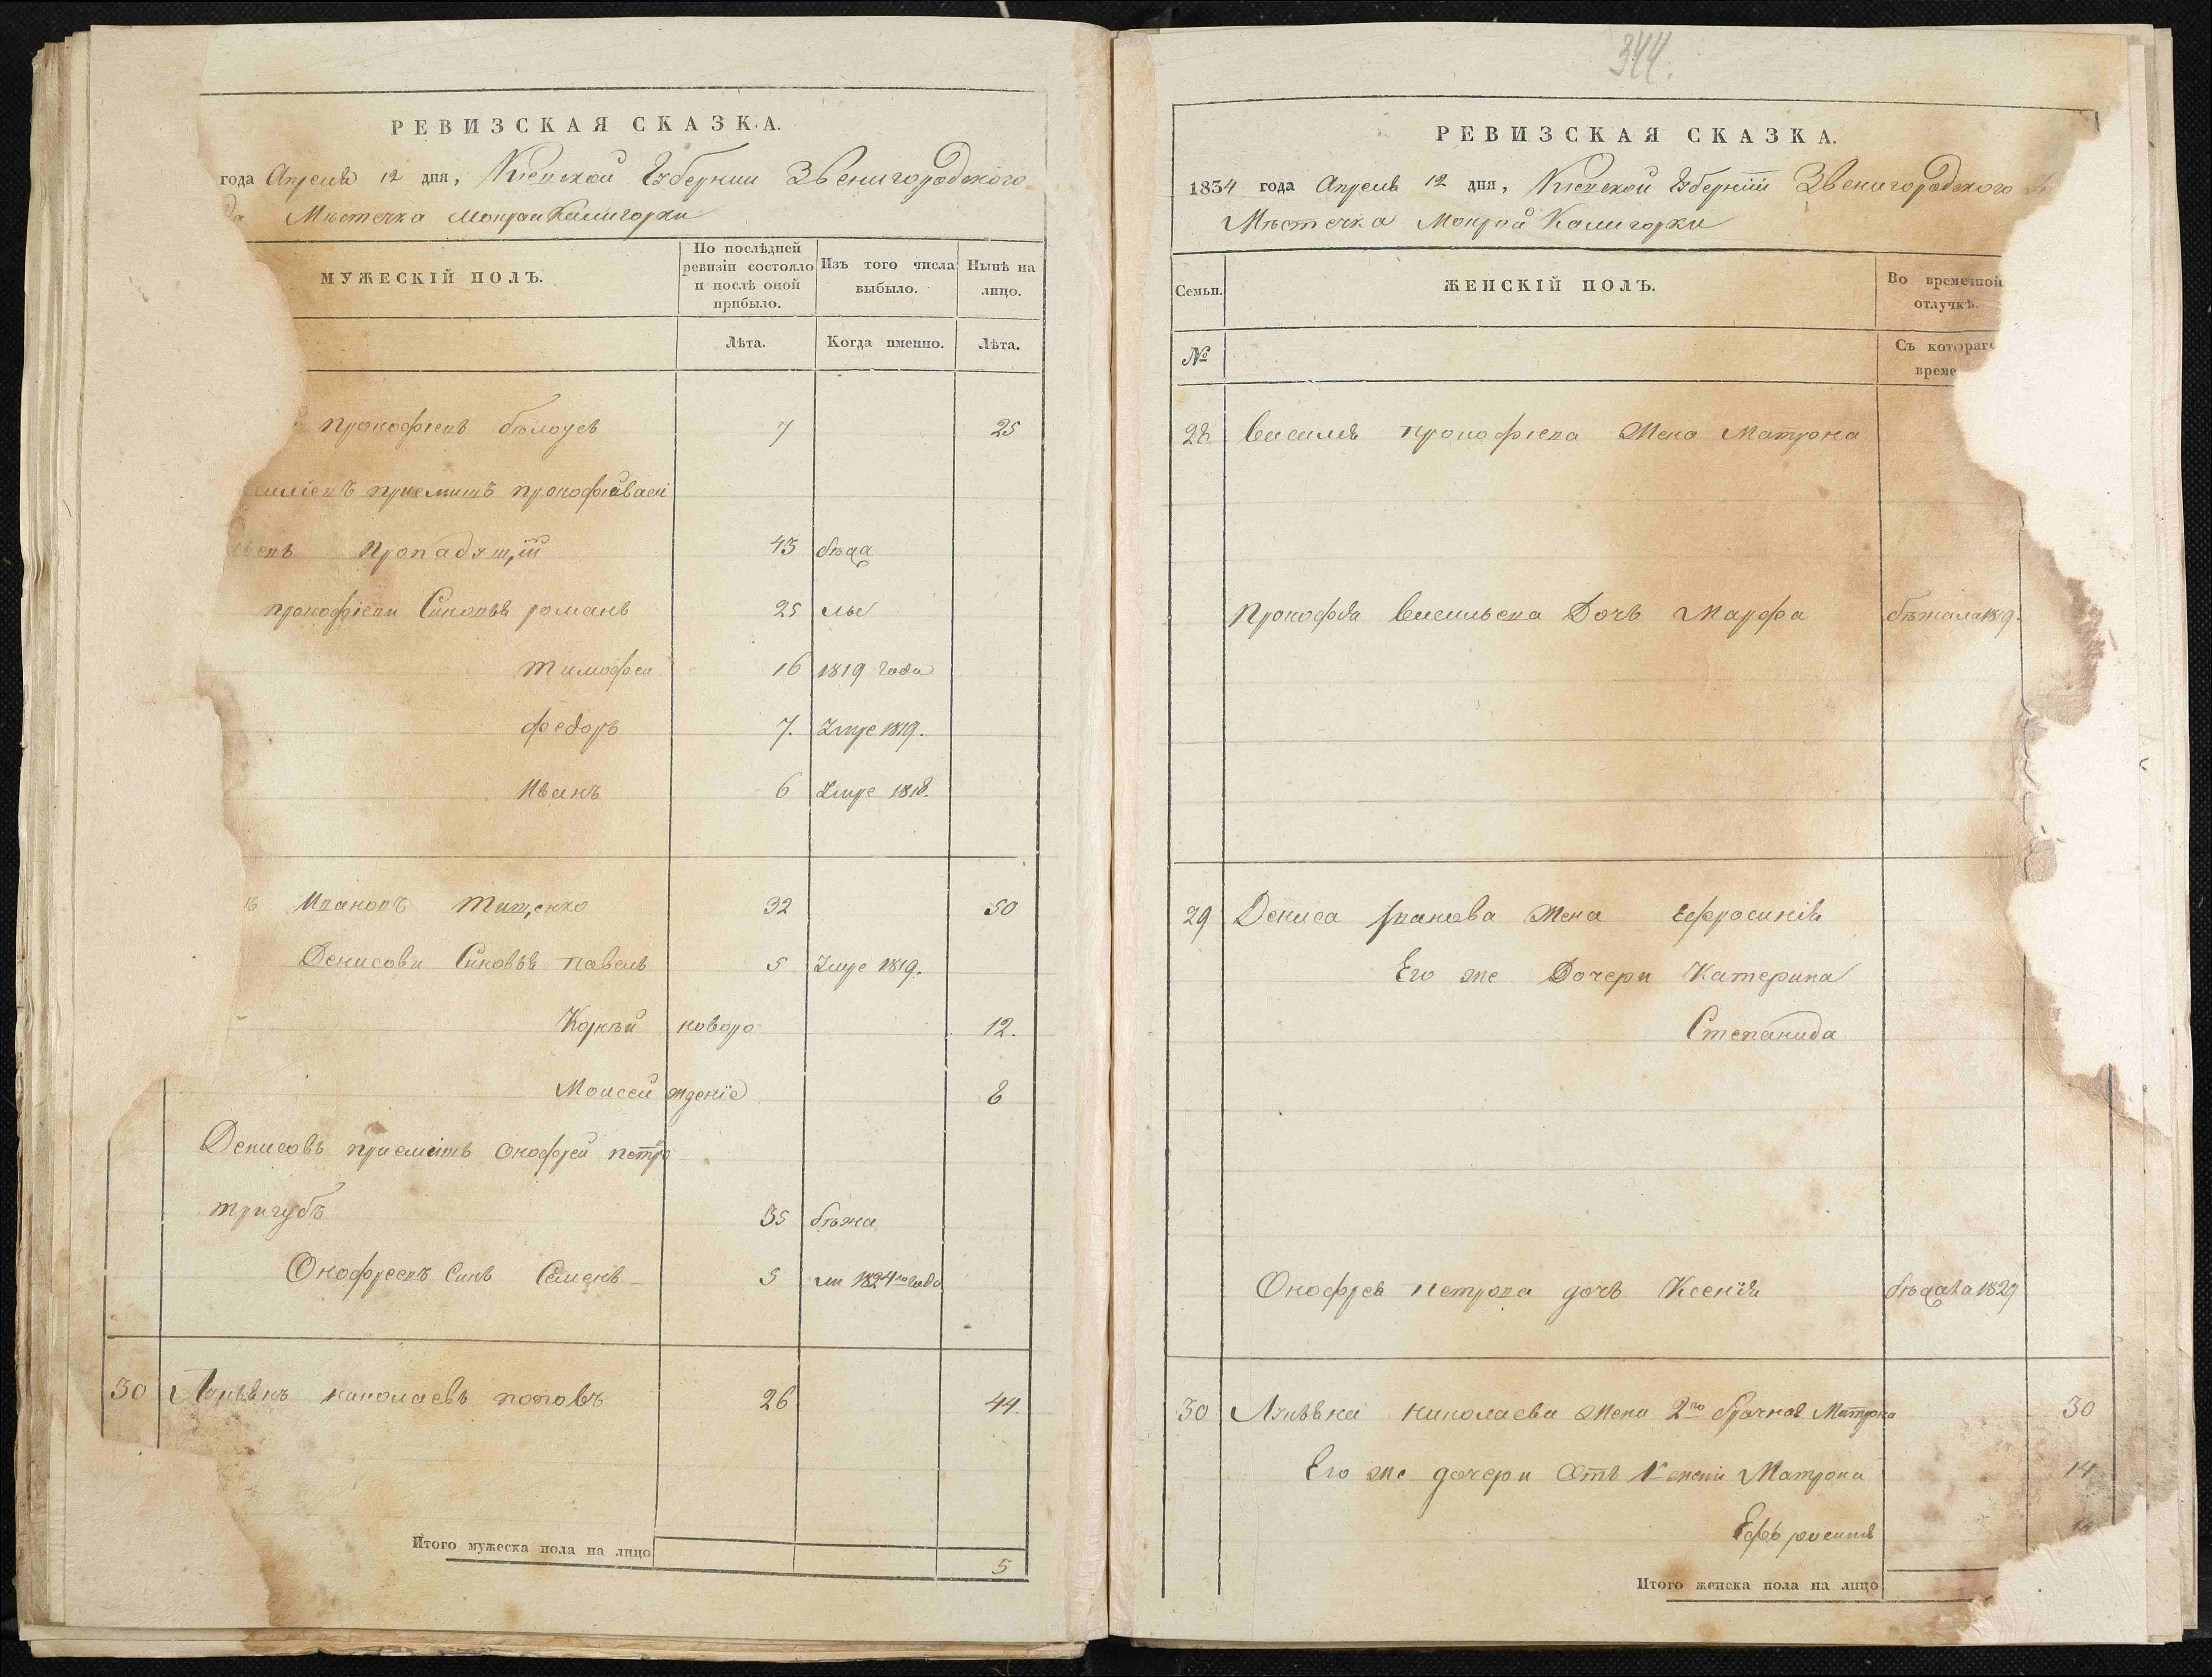 РЕВИЗСКАЯ СКАЗКА.
года Апреля 12 дня, Кіевской Губернии Звенигородского
Мѣстечка Мокрой Калигорки
МУЖЕСКІЙ ПОЛЪ.
По послѣдней ревизіи состояло и послѣ оной прибыло.
Изъ того числа выбыло.
Нынѣ на лицо.
Лѣта.
Когда именно.
Лѣта.
Прокофіевъ бѣлоусъ 7 25
приемишъ прокофій
Пропадящій 43
прокофіеви Синовья романъ 25
тимофей 16 1819 года
федоръ 7. Умре 1819.
Иванъ 6 Умре 1818.
Ивановъ тищенко 32 50
Денисови Синовья павелъ 5 Умре 1819.
Корнѣй новоро 12.
Моисей жденіе 8
Денисовъ приемишъ Онофрей петро
тригубъ 35 бѣжа
Онофреевъ Синъ Семенъ 5 ли 1824го года
30 николаевъ поповъ 26 44.
Итого мужеска пола на лицо 5
344.
РЕВИЗСКАЯ СКАЗКА.
1834 года Апреля 12 дня, Кіевской Губерніи Звенигородского
Мѣстечка Мокрой Калигорки
Семьи.
ЖЕНСКІЙ ПОЛЪ.
Во временной отлучкѣ.
№
Съ котораго
време
28 Василія прокофіева Жена Матрона
Прокофія Васильева Дочь Марфа бѣжала 1819.
29 Дениса Иванова Жена Ефросинія
Его же Дочери Катерина
Степанида
Онофрея петрова дочь Ксенія бѣжала 1829
30 Николаева Жена 2го брачная Матрона 30
Его же дочери Отъ 1й жени Матрона 14
Ефросинія
Итого женска пола на лицо